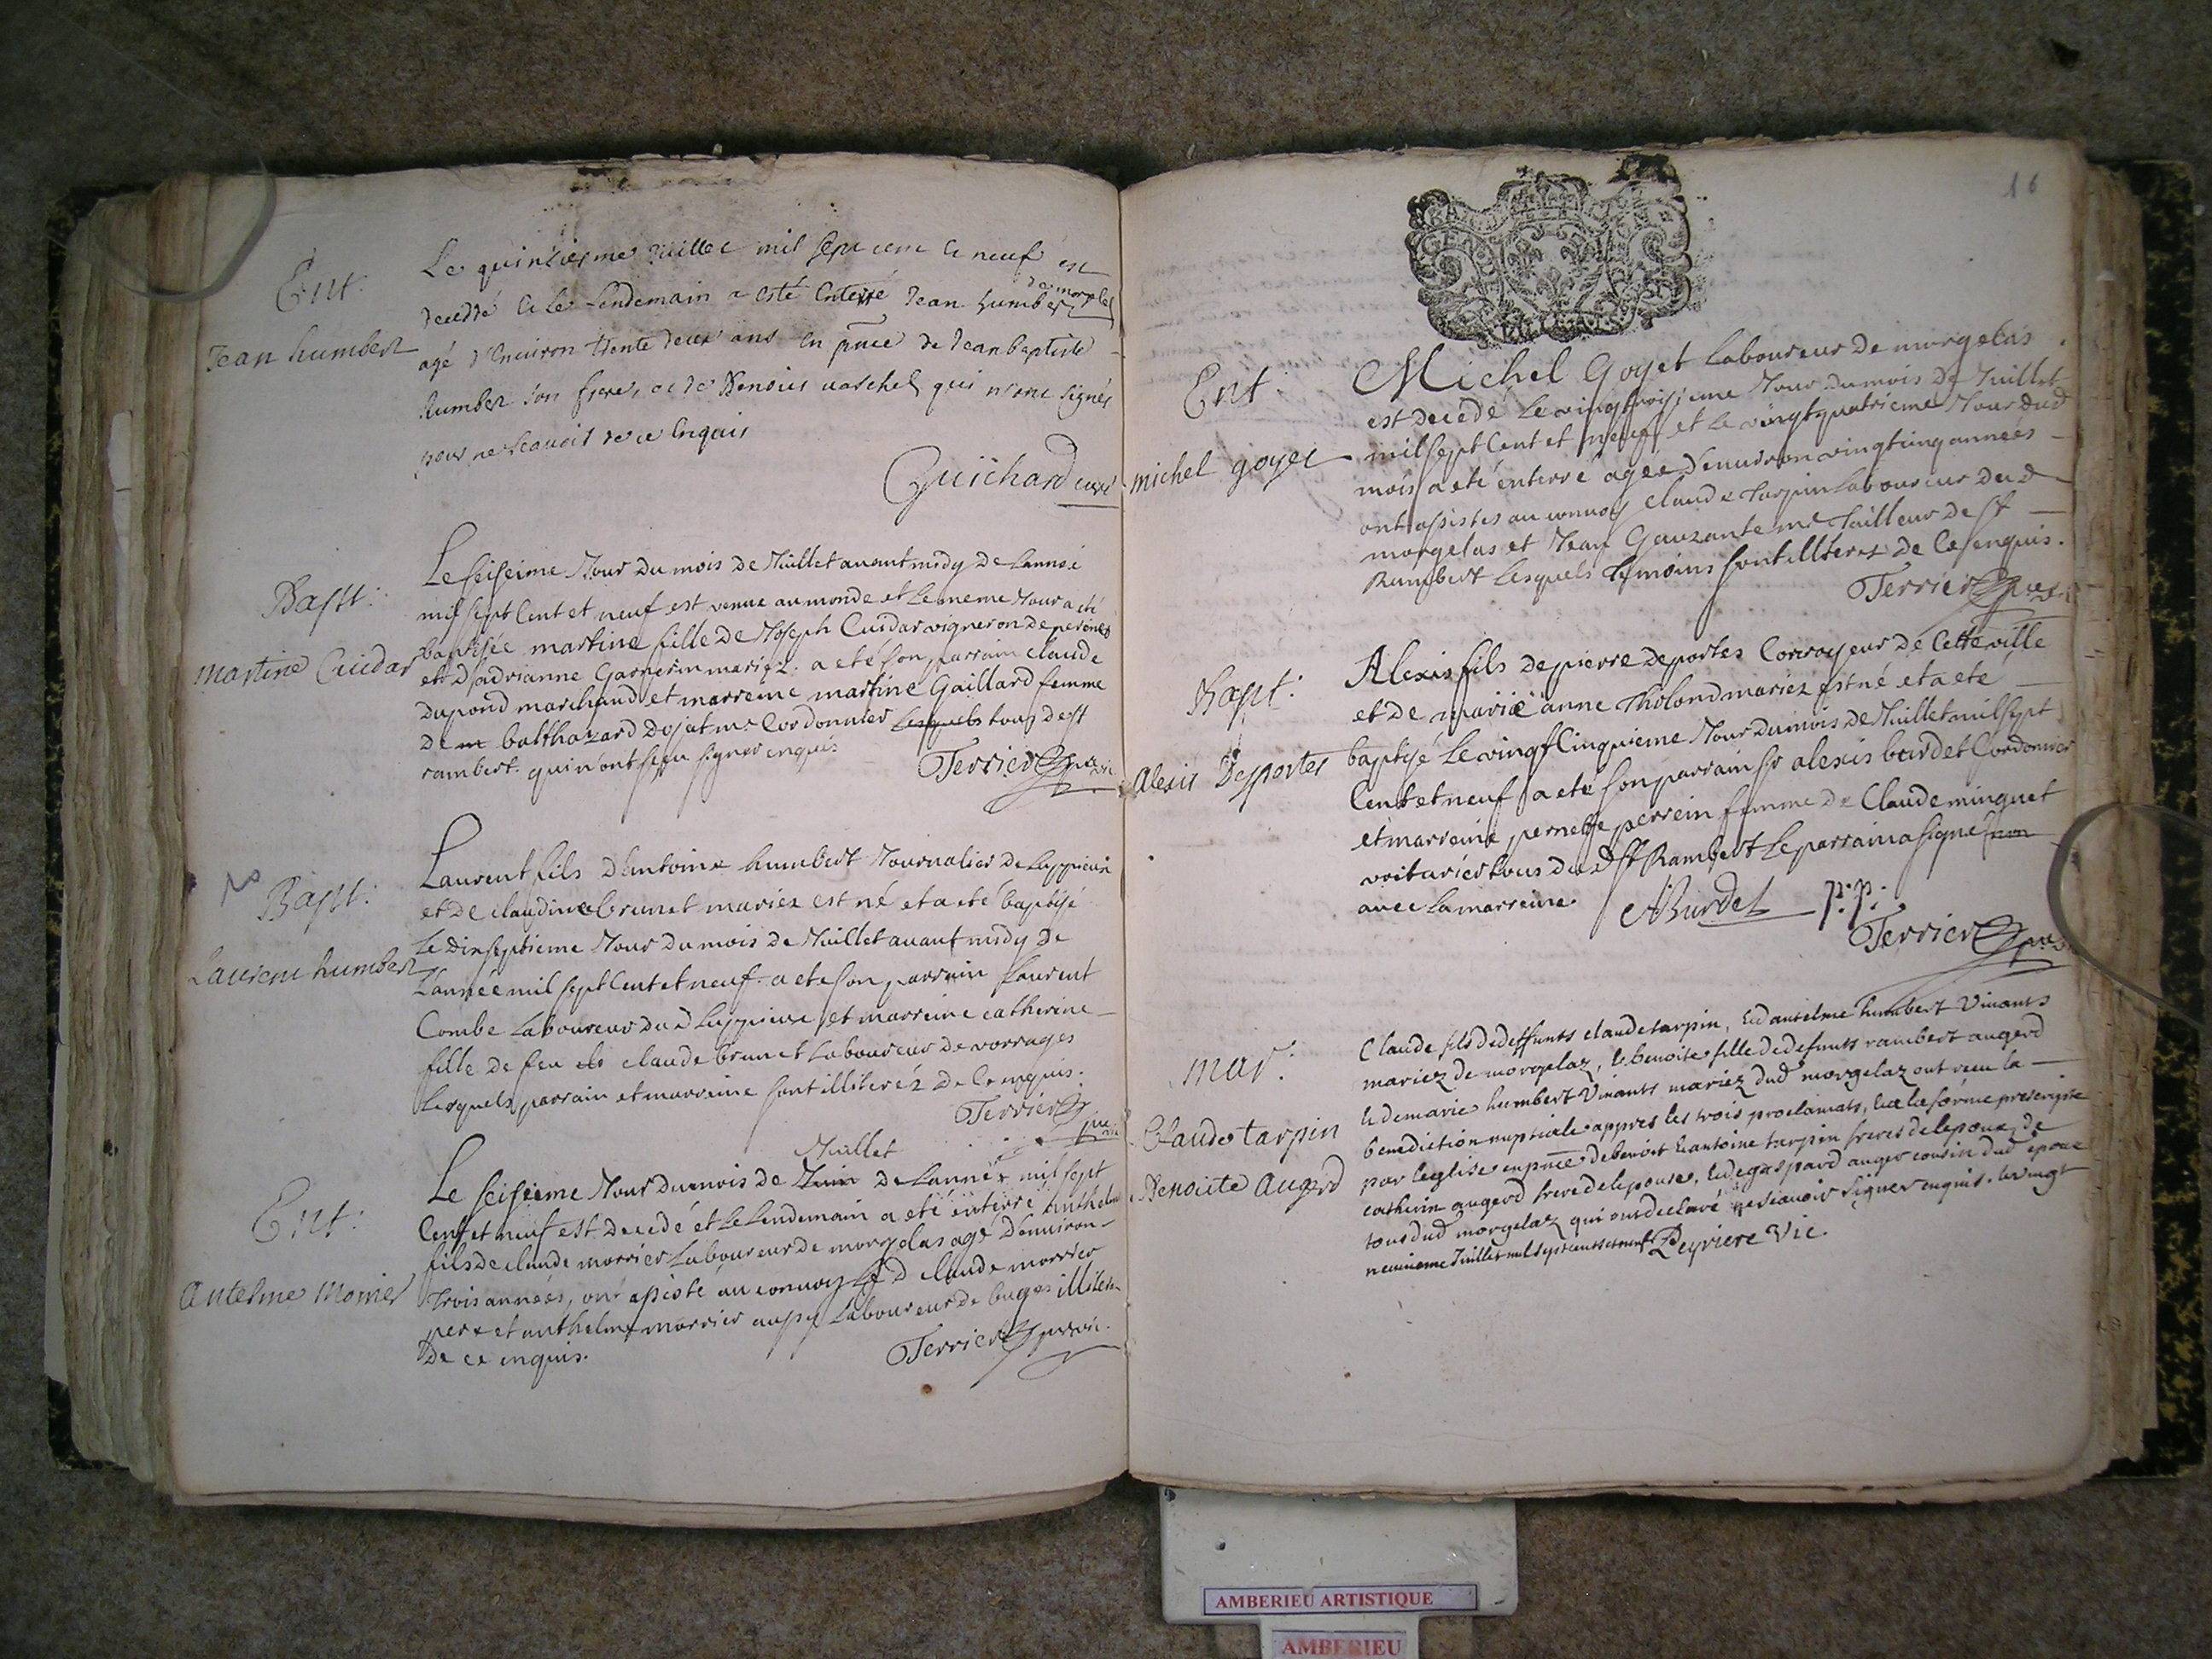 Ent:
Jean humbert
Le quinziesme Juillet mil sept cent et neuf est
decedé et le lendemain a esté enterré Jean humbert de morgelas
agé d'environ trente deux ans en pñce de Jean baptiste
humbert son frere, et de Benoict qui n'ont signés
pour ne scavoir de ce enquis
Guichard curé
Bapt:
Martine Cuidar
Le seiseime Jour du mois de Juillet avant midy de lannéé
mil sept Cent et neuf est venue au monde et le meme Jour a eté
baptisée martine fille de Joseph Cuidar vigneron de
et dadrianne Garnerin mariez. a eté son parrain claude
dupond marchand et marreine martine Gaillard femme
de m balthazard Dojat mr Cordonnier lesquels tous de st
rambert. qui n'ont sceu signer enquis
Terrier
Bapt:
Laurent humbert
Laurent fils d'antoine humbert Journalier de luppieu
et de claudine brunet mariez est né et a eté baptisé
le dixseptieme Jour du mois de Juillet avant midy de
l'année mil sept Cent et neuf. a eté son parrain laurent
Combe laboureur dud luppieu et marreine catherine
fille de feu claude brunet laboureur de vorrages
lesquels parrain et marreine sont illiteréz de ce enquis.
Terrier
Ent:
Antelme Morrier
Juillet
Le seisieme Jour du mois de Juin de lannéé mil sept
Cent et neuf est decedé et le lendemain a eté enterré anthelme
fils de claude morrier laboureur de morgelas agé d'environ
trois années, ont assisté au convoy led claude morrier
pere et anthelme morrier aussy laboureur de buges illiterez
de ce enquis.
Terrier
16
Ent:
michel goyet
Michel Goyet laboureur de morgelas
est decedé le vingtroisieme Jour du mois de Juillet
mil sept Cent et neuf et le vingtquatrieme Jour dud
mois a eté enterré agee d'environ vingt cinq années
ont assistes au convoy claude tarpin laboureur dud
morgelas et Jean Gauzante me Tailleur de st
Rambert lesquels temoins sont illiterez de ce enquis.
Terrier
Bapt:
Alexis Desportes
Alexis fils de pierre deportes Corroyeur de Cette ville
et de marie anne Tholond mariez est né et a eté
baptisé le vingt Cinquieme Jour du mois de Juillet mil sept
Cent et neuf a eté son parrain sr alexis burdet Cordonnier
et marreine pernette perrein femme de Claude minguet
voiturier tous dud st Rambert le parrain a signé non
avec la marreine.
ABurdet p:p:
Terrier
Mar:
Claude tarpin
Benoite Augerd
Claude fils de deffunts claude tarpin, et d'antelme humbert vivants
mariez de morgelaz, et benoite fille de defunts rambert augerd
et de marie humbert vivants mariez dud morgelaz ont receu la
benediction nuptiale appres les trois proclamats, et la forme prescripte
par l'eglise en pñce de benoit et antoine tarpin freres de lepoux, de
catherin augerd frere de lepouse, et de gaspard auger cousin dud epoux
tous dud morgelaz qui ont declaré ne scavoir signer enquis. le vingt
neuvieme Juillet mil sept cents et neuf Peyriere Vic.
AMBERIEU ARTISTIQUE
AMBERIEU